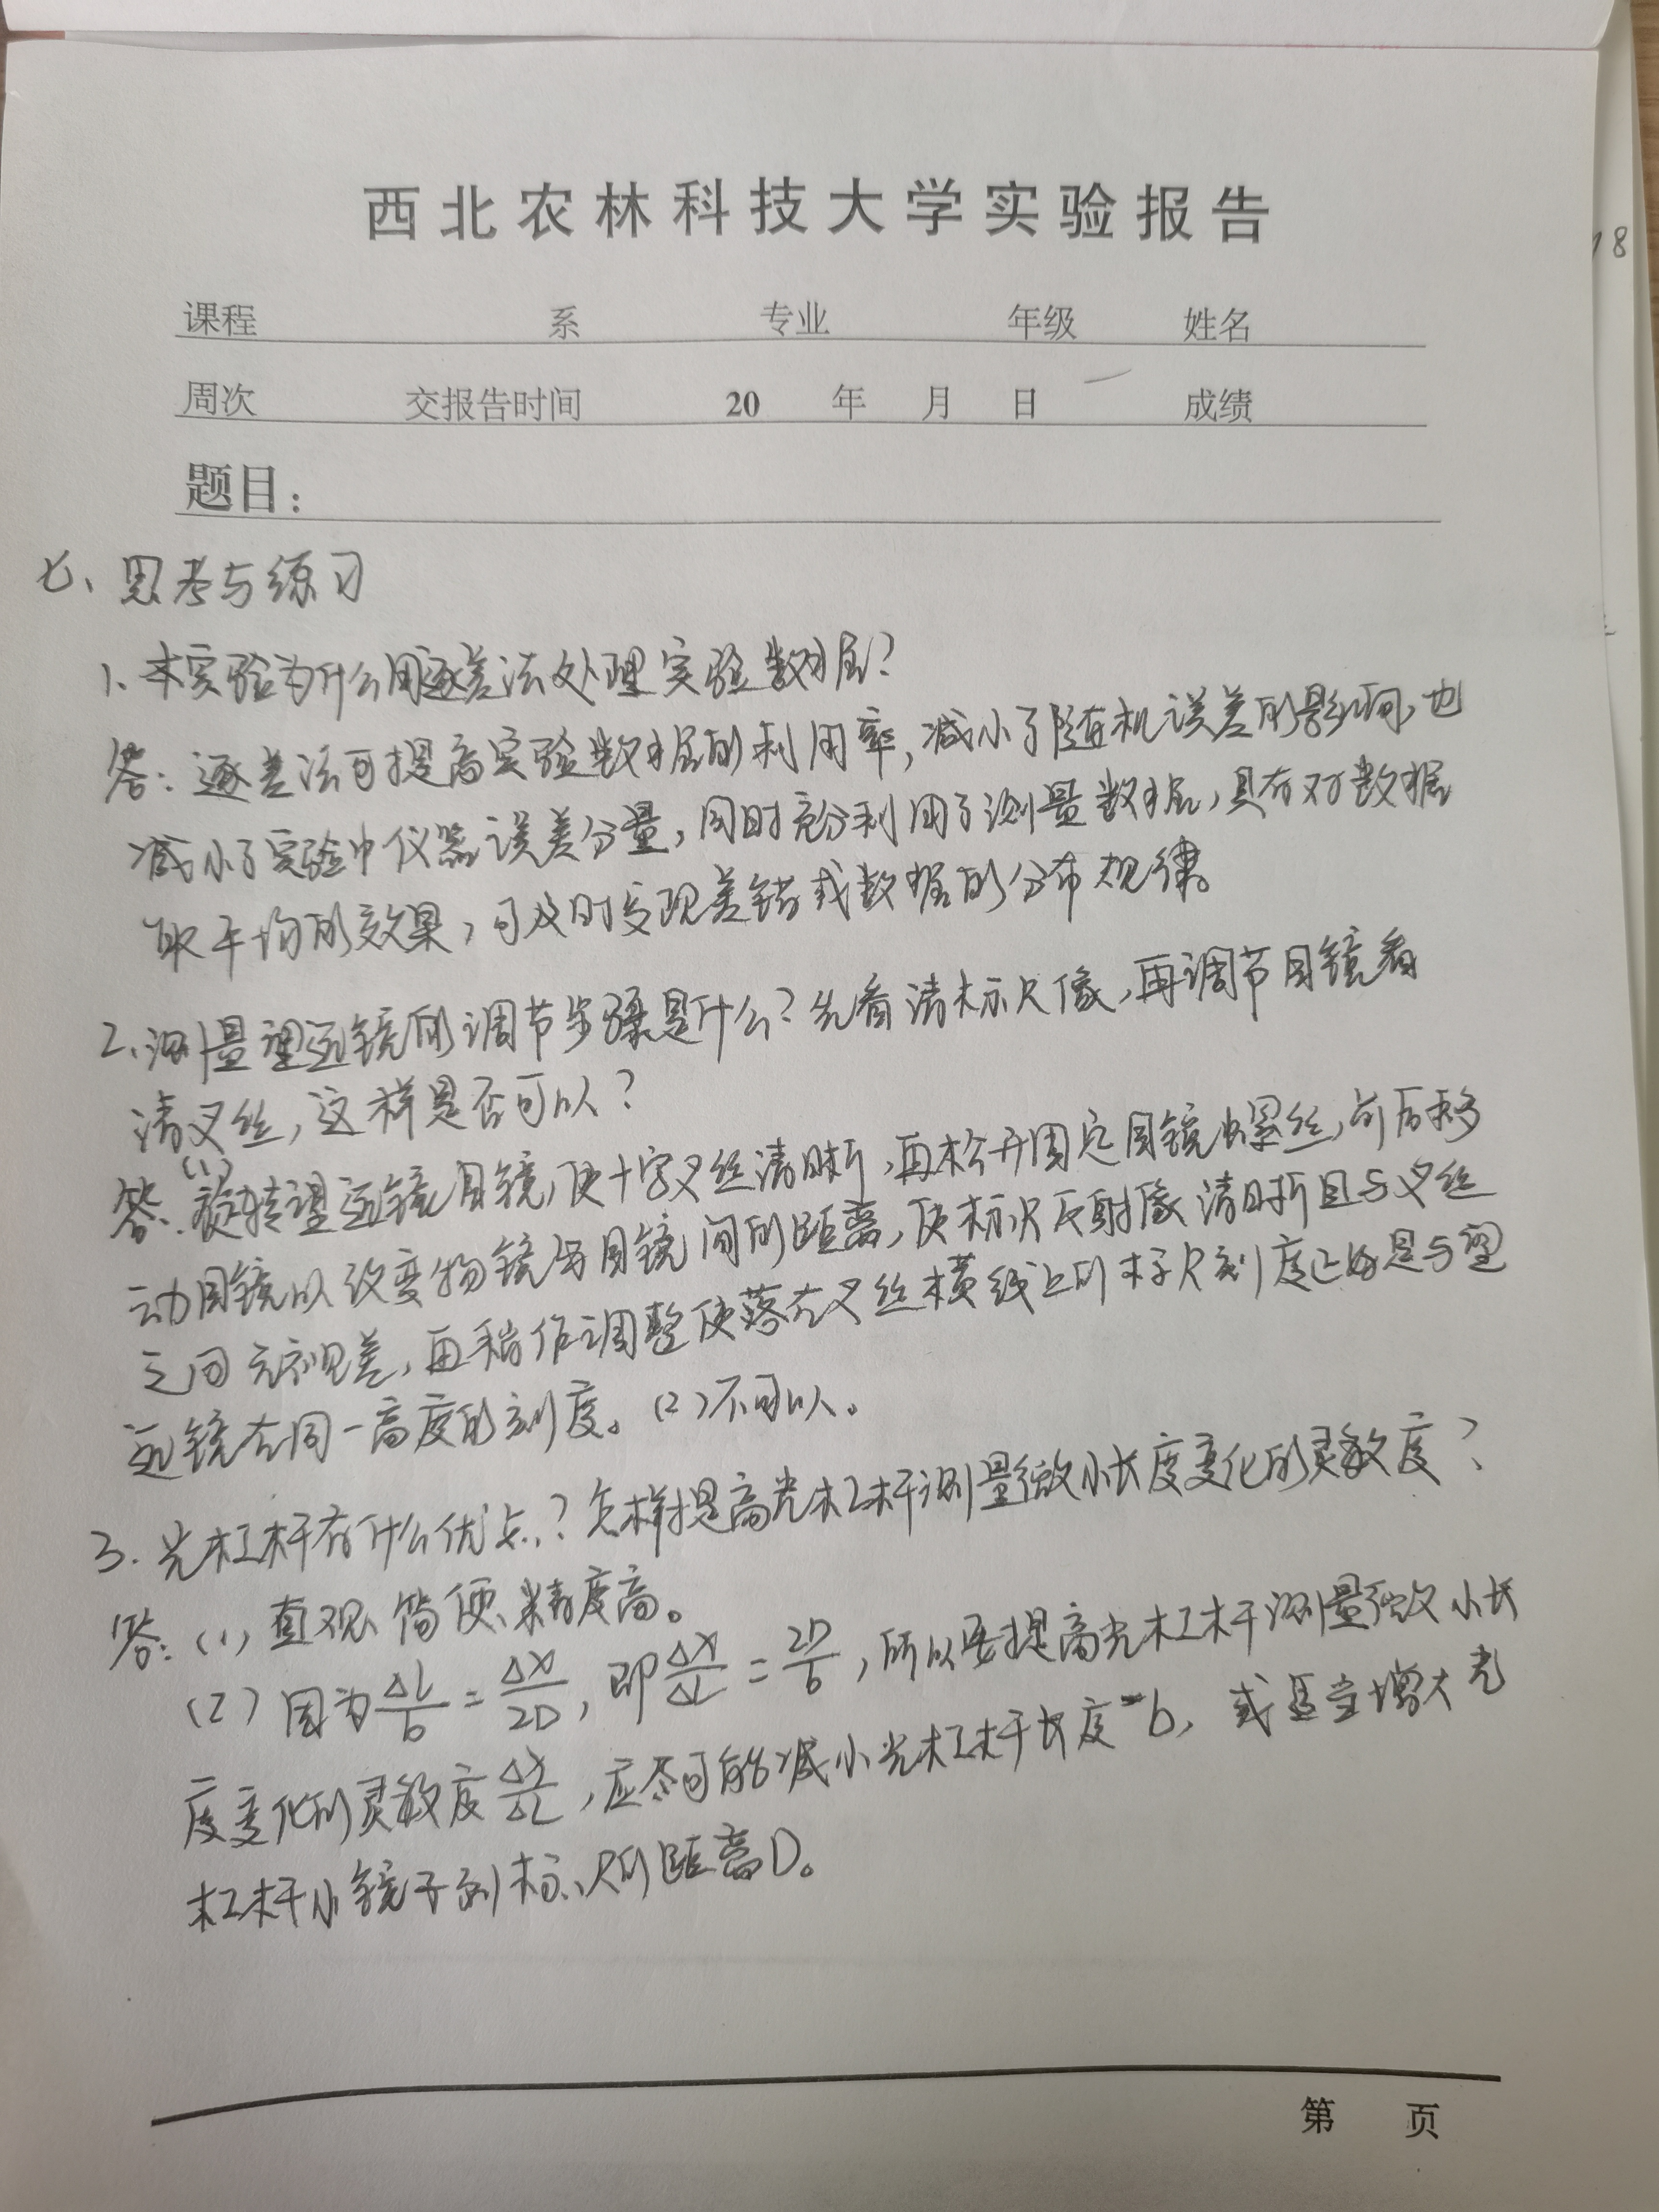 西北农林科技大学实验报告
18
课程 系 专业 年级 姓名
周次 交报告时间 20 年 月 日 成绩
题目：
七、思考与练习
1、本实验为什么用逐差法处理实验数据？
答：逐差法可提高实验数据的利用率，减小了随机误差的影响，也
减小了实验中仪器误差分量，同时充分利用了测量数据，具有对数据
取平均的效果，可及时发现差错或数据的分布规律。
2、测量望远镜的调节步骤是什么？先看清标尺像，再调节目镜看
清叉丝，这样是否可以？
答：(1)旋转望远镜目镜，使十字叉丝清晰，再松开固定目镜螺丝，前后移
动目镜以改变物镜与目镜间的距离，使标尺反射像清晰且与叉丝
之间无视差，再稍作调整使落在叉丝横线上的标尺刻度正好是与望
远镜在同一高度的刻度。(2)不可以。
3. 光杠杆有什么优点？怎样提高光杠杆测量微小长度变化的灵敏度？
答：(1)直观、简便、精度高。
(2) 因为 ΔL/b = ΔX/2D，即 ΔX/ΔL = 2D/b，所以要提高光杠杆测量微小长
度变化的灵敏度 ΔX/ΔL，应尽可能减小光杠杆长度b，或适当增大光
杠杆小镜子到标尺的距离D。
第 页